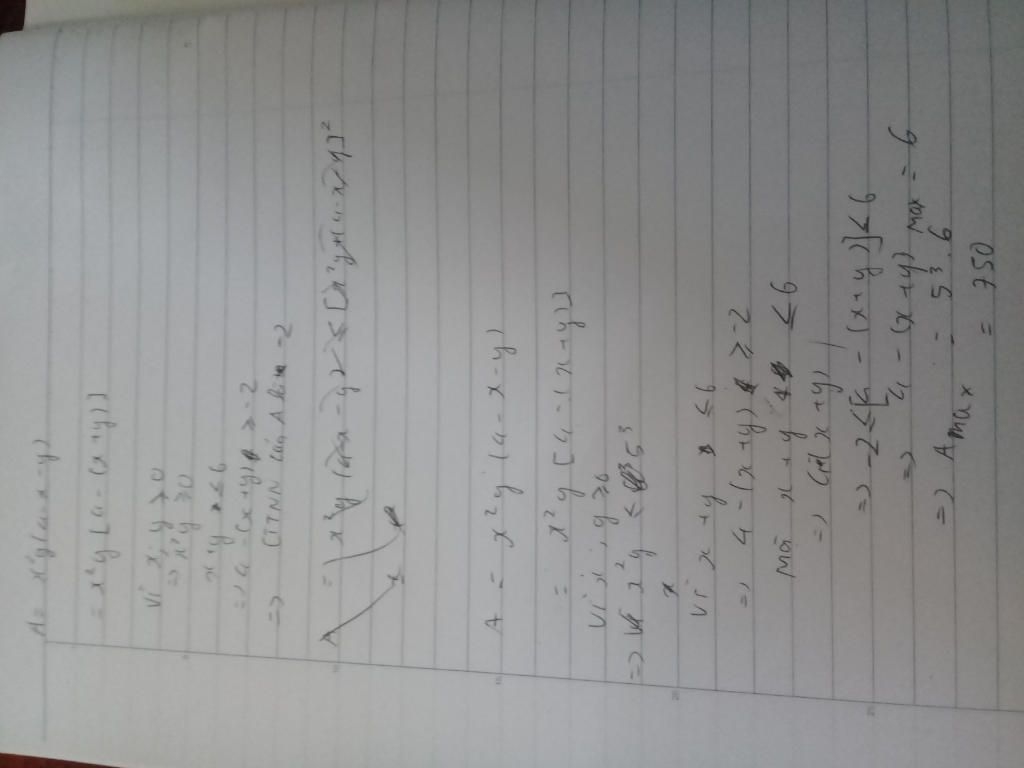 A = x²y(4-x-y)
= x²y[4-(x+y)]
Vì x,y ≥ 0
⇒ x²y ≥ 0
x+y ≤ 6
⇒ 4-(x+y) ≥ -2
⇒ GTNN của A là -2
A = x²y(4-x-y)
= x²y[4-(x+y)]
Vì x,y ≥ 0
⇒ x²y ≤ 5³
Vì x+y ≤ 6
⇒ 4-(x+y) ≥ -2
Mà x+y ≤ 6
⇒ (x+y)
⇒ -2 ≤ [4-(x+y)] ≤ 6
⇒ 4-(x+y) max = 6
⇒ A max = 5³.6
= 750